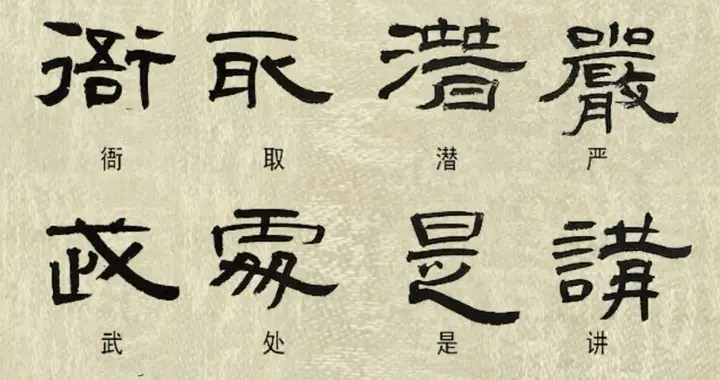 衙 取 潜 嚴
衙 取 潜 严
武 處 是 講
武 处 是 讲